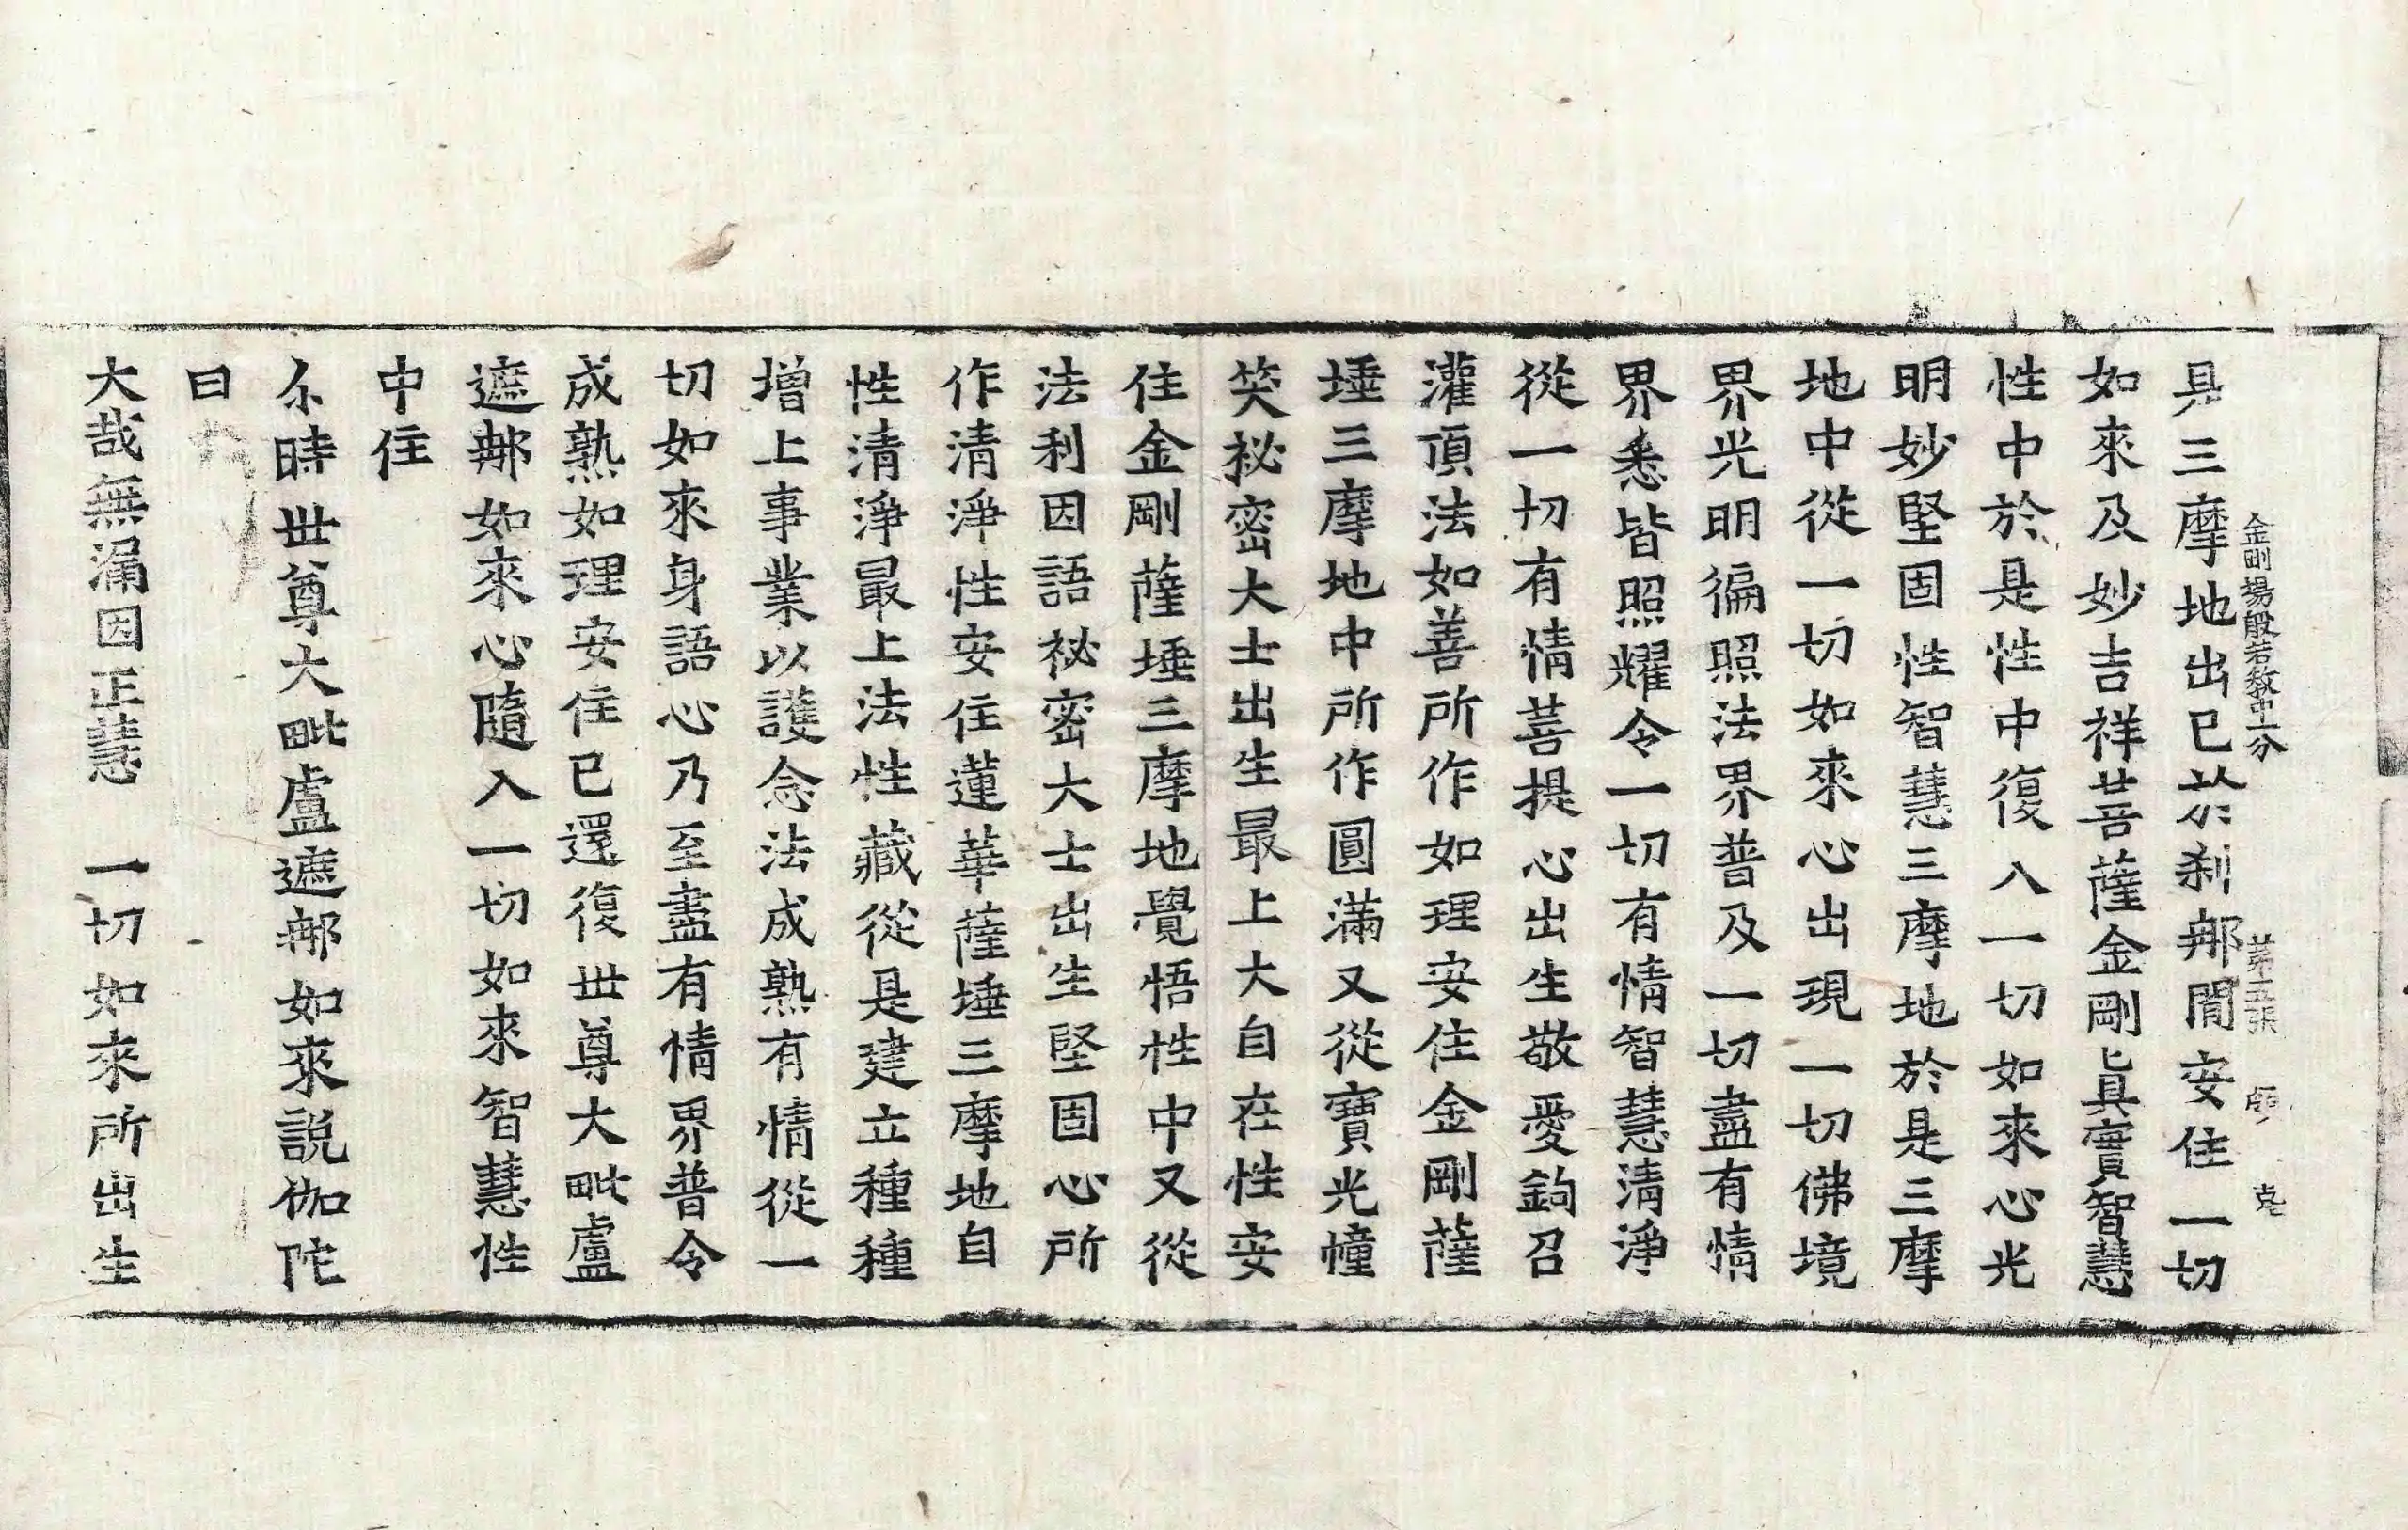 是三摩地出已於刹那間安住一切
金剛場般若教中一分 第五張 克
如來及妙吉祥菩薩金剛眞實智慧
性中於是性中復入一切如來心光
明妙堅固性智慧三摩地於是三摩
地中從一切如來心出現一切佛境
界光明徧照法界普及一切盡有情
界悉皆照耀令一切有情智慧清淨
從一切有情菩提心出生敬愛鈎召
灌頂法如善所作如理安住金剛薩
埵三摩地中所作圓滿又從寶光幢
笑祕密大士出生最上大自在性安
住金剛薩埵三摩地覺悟性中又從
法利因語祕密大士出生堅固心所
作清淨性安住蓮華薩埵三摩地自
性清淨最上法性藏從是建立種種
增上事業以護念法成熟有情從一
切如來身語心乃至盡有情界普令
成熟如理安住已還復世尊大毗盧
遮那如來心隨入一切如來智慧性
中住
尒時世尊大毗盧遮那如來説伽陀
曰
大哉無漏因正慧　一切如來所出生